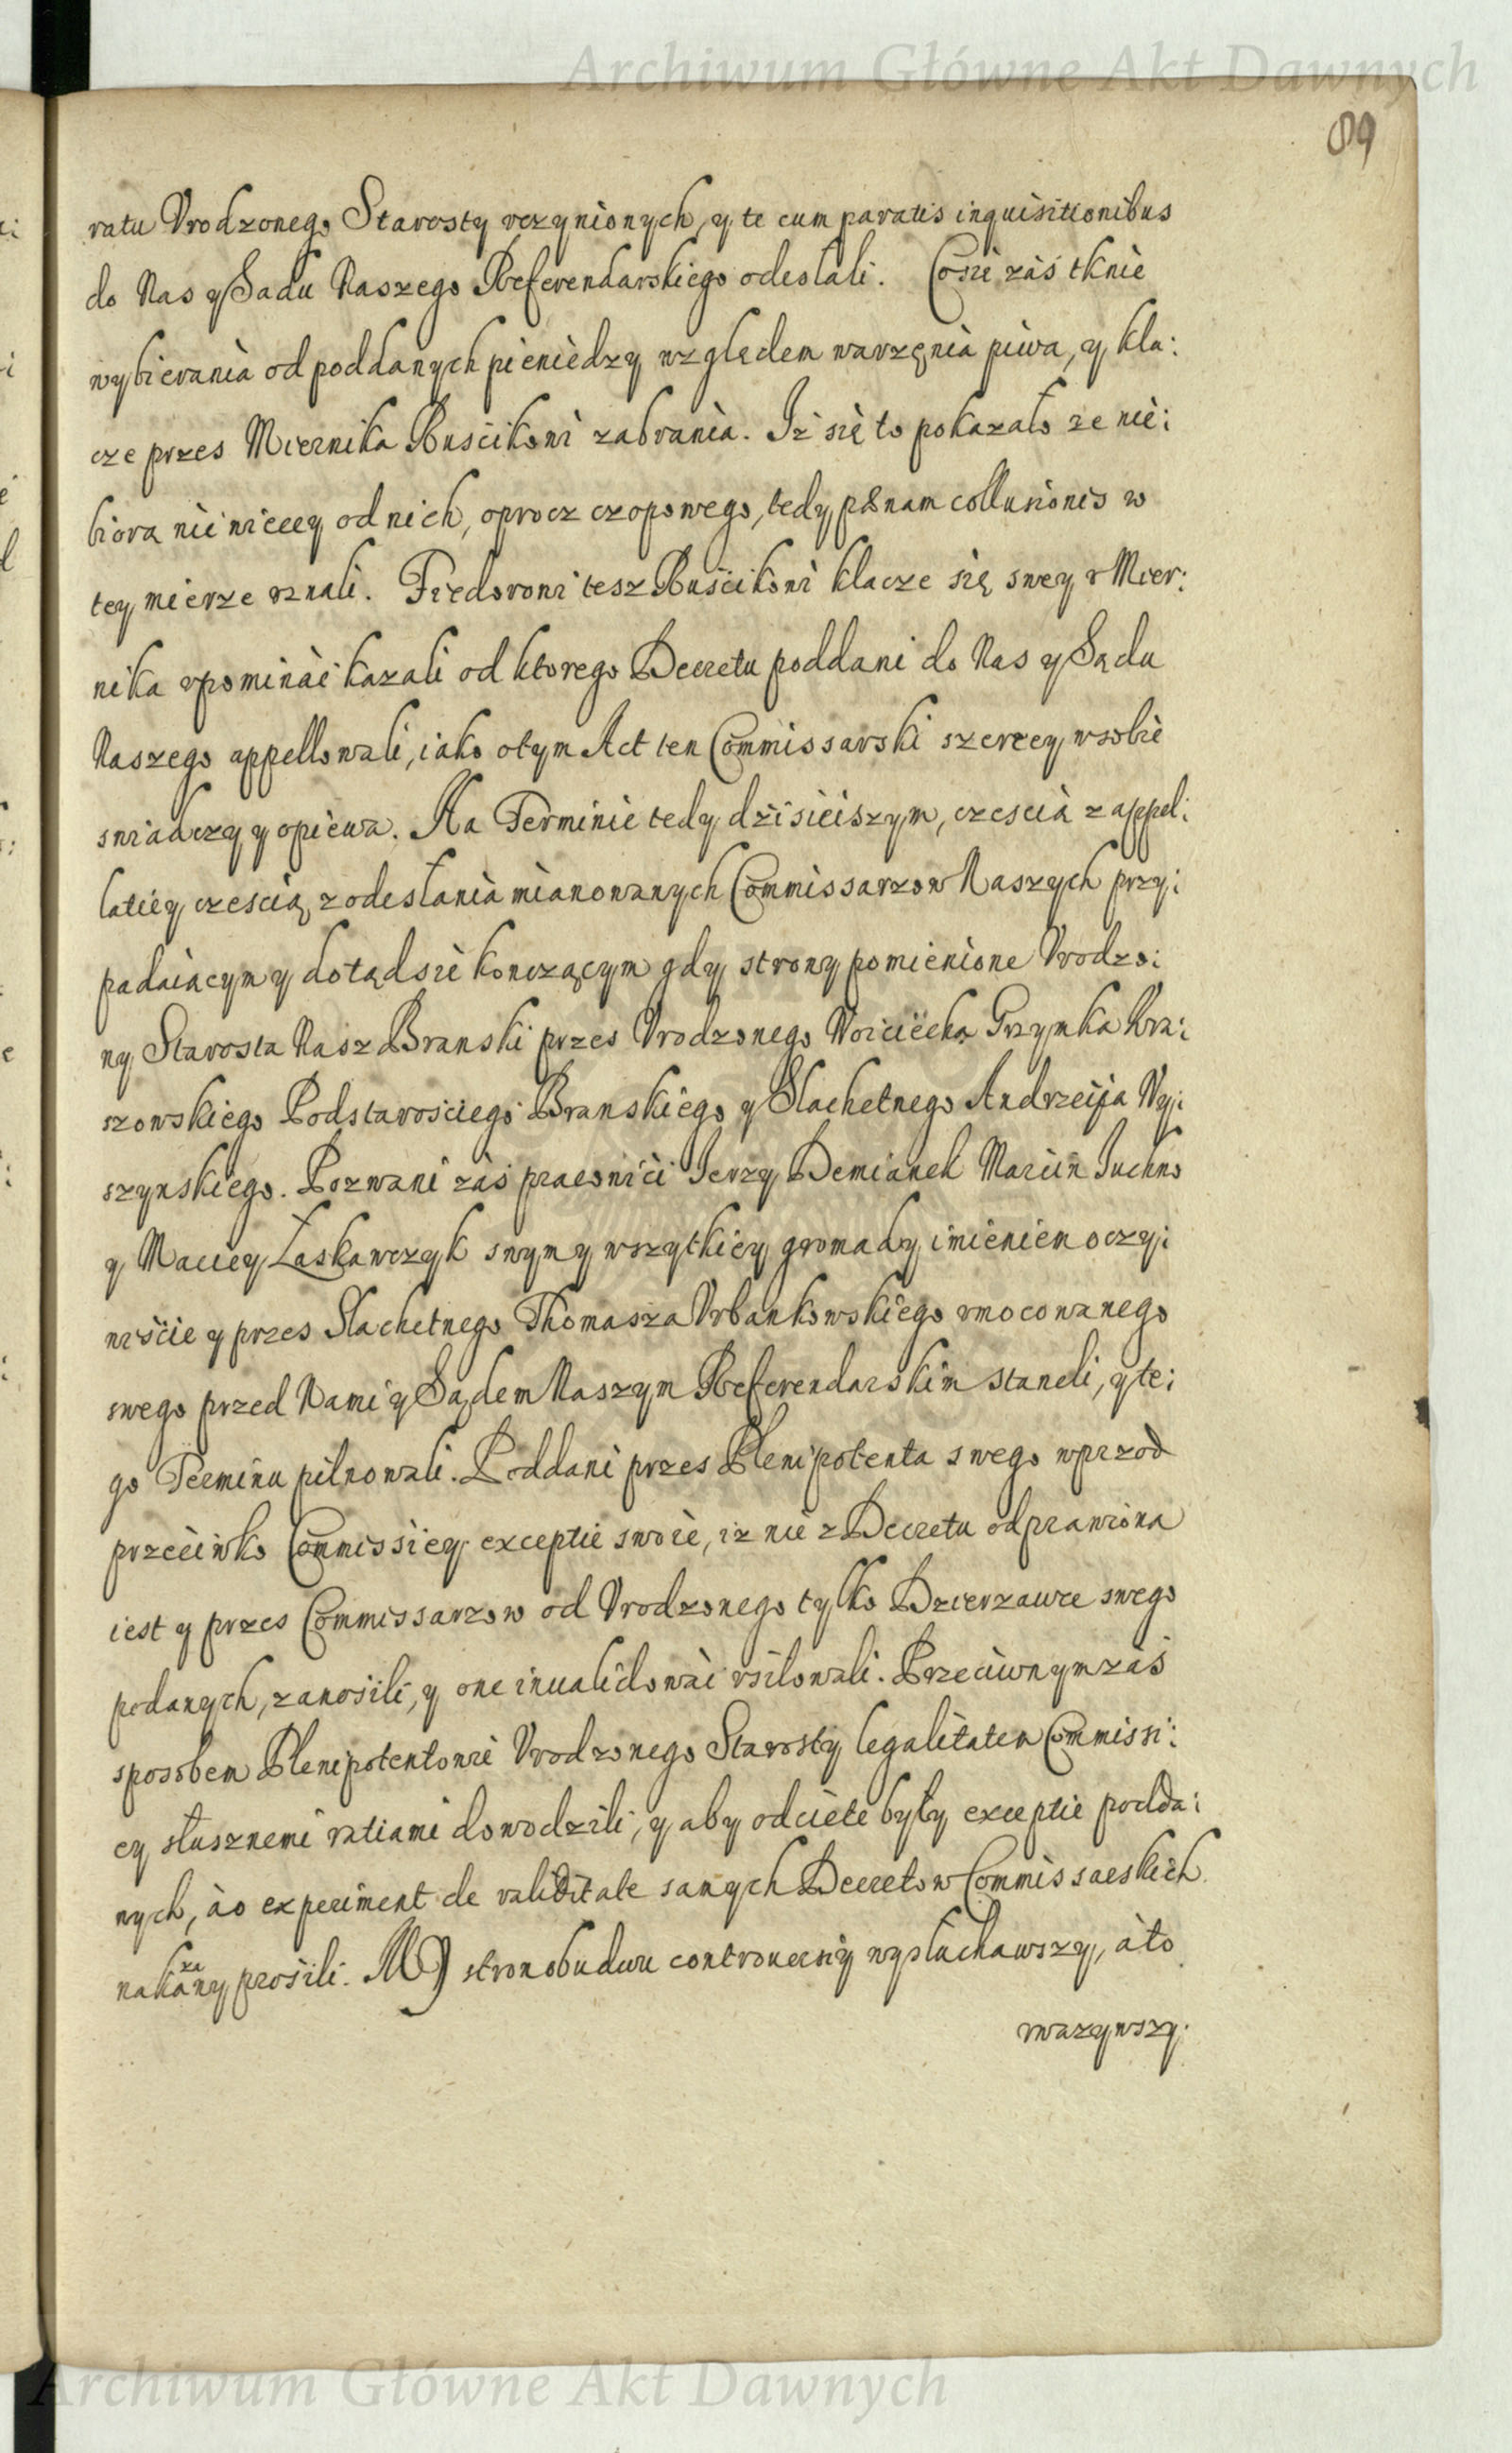 Archiwum Główne Akt Dawnych
89
ratu Vrodzonego Starosty vczynionych, y te cum paratis inquisitionibus
do Nas y Sadu Naszego Referendarskiego odesłali. Cosie zaś tknie
wybierania od poddanych pieniędzy względem warzęnia piwa, y kla:
cze przes Miernika Ruscikowi zabrania. Iż się to pokazało ze nie:
biora nic wiecey od nich, oprocz czopowego, tedy pænam collusionis w
tey mierze vznali. Fiedorowi tesz Ruścikowi klacze się swey v Mier:
nika vpominać kazali od ktorego Decretu poddani do Nas y Sądu
Naszego appellowali, iako otym Act ten Commissarski szerzey wsobie
swiadczy y opiewa. Na Terminie tedy dzisieiszym, czescią z appel:
latiey czescią z odesłania mianowanych Commissarzow Naszych przy:
padaiącym y dotądsie konczącym gdy strony pomienione Vrodzo:
ny Starosta Nasz Branski przes Vrodzonego Woiciecha Grzymka Kra:
szowskiego Podstarościego Branskiego y Slachetnego Andrzeija Wy:
szynskiego. Pozwani zaś pracowici Jerzy Demianek Marcin Juchno
y Maciey Łaskawczyk swym y wszytkiey gromady imieniem oczy:
wiście y przes Slachetnego Thomasza Vrbankowskiego vmocowanego
swego przed Nami y Sądem Naszym Referendarskim staneli, y te:
go Terminu pilnowali. Poddani przes Plenipotenta swego wprzod
przeciwko Commissiey exceptie swoie, iz nie z Decretu odprawiona
iest y przes Commissarzow od Vrodzonego tylko Dzierzawce swego
podanych, zanosili, y one inualidować vsiłowali. Przeciwnym zaś
sposobem Plenipotentowie Vrodzonego Starosty legalitatem Commissi:
ey słusznemi ratiami dowodzili, y aby odciete były exceptie podda:
nych, ào experiment de validitate samych Decretow Commissarskich
nakazany prosili. MY stron obudwu controuersiy wysłuchawszy, àto
vwazywszy.
Archiwum Główne Akt Dawnych